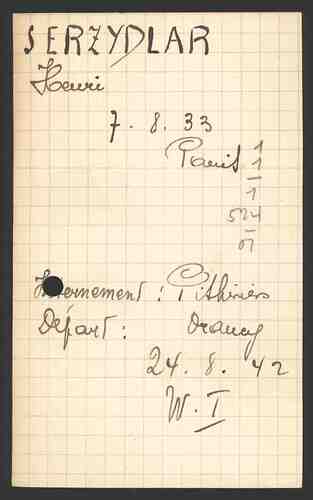 SERZYDLAR
Henri
7. 8. 33
Paris 1
1
1
524
01
Internement : Pithiviers
Départ : Drancy
24. 8. 42
W. I